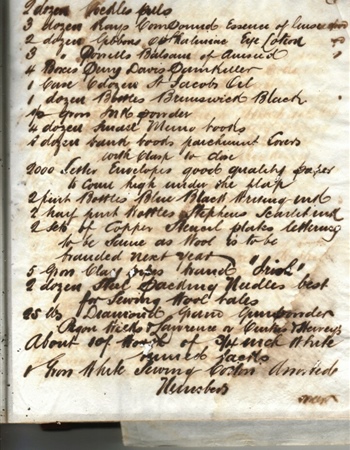 2 dozen Beechams pills
3 dozen Kays Compound Essence of Linseed
2 dozen Gibbons Eye Lotion
3 " Powells Balsam of Aniseed
4 Boxes Perry Davis Painkiller
1 Case 6 dozen St Jacobs Oil
1 dozen Bottles Brunswick Black
Gross Ink powder
4 dozen Small Memo books
2 dozen bank books parchment Covers
with Clasp to close
2000 Letter Envelopes good quality paper
to Come high under the flap
2 pint Bottles Blue Black Writing ink
2 half pint Bottles Stephens Scarlet ink
2 sets of Copper Stencil plates lettering
to be same as Wool is to be
branded next year
5 Gross Clay pipes brand "Irish"
2 dozen Steel Packing Needles best
for Sewing Wool bales
25 lbs Diamond Grain Gunpowder
Pigou Wilks & Lawrence or Curtis & Harveys
About 10/- Worth of 3/4 inch White
Tacks
Gross White Sewing Cotton Assorted
Numbers